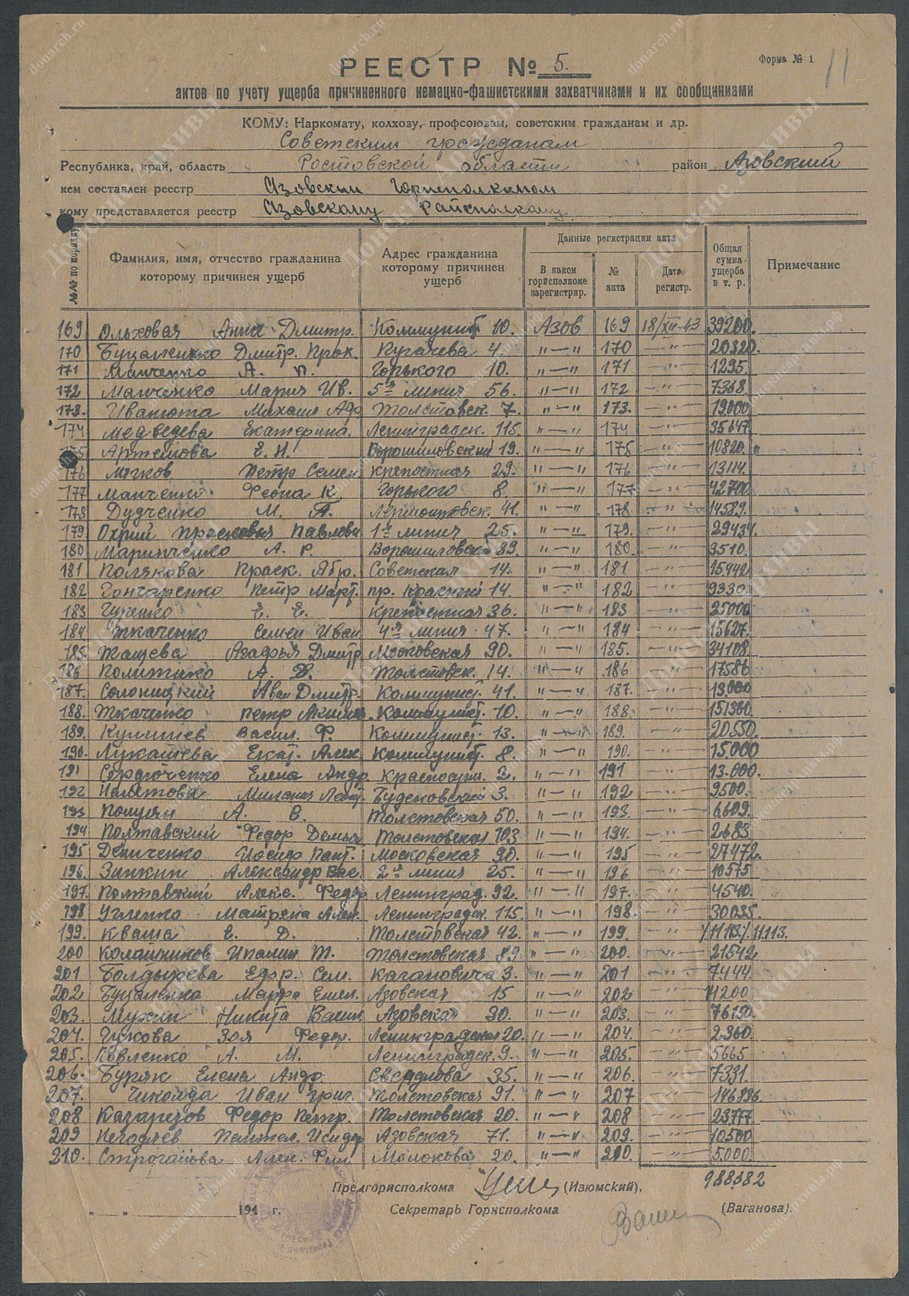 РЕЕСТР № 5.
Форма № 1
11
актов по учету ущерба причиненного немецко-фашистскими захватчиками и их сообщниками
КОМУ: Наркомату, колхозу, профсоюзам, советским гражданам и др.
Советским гражданам
Республика, край, область Ростовской области район Азовский
кем составлен реестр Азовским Горисполкомом
кому представляется реестр Азовскому Райсполкому
№№ по порядку Фамилия, имя, отчество гражданина которому причинен ущерб Адрес гражданина которому причинен ущерб Данные регистрации акта В каком горисполкоме зарегистрир. № акта Дата регистр. Общая сумма ущерба в т. р. Примечание
169 Ольховая Анна Дмитр. Коммунист 10. Азов 169 18/XII-43 39200.
170 Буцаленко Дмитр. Прок. 4. "—" 170 —"— 20320.
171 Манченко А. П. Горького 10. "—" 171 —"— 1295.
172 Манченко Мария Ив. 5я линия 56. "—" 172 —"— 7368.
173. Иванюта Михаил Толстовск. 7. "—" 173. —"— 19000
174 Медведева Екатерина. Ленинградск. 115. "—" 174 —"— 35647
175 Артемова Е. Н. Ворошиловский 19. "—" 175 —"— 10820.
176 Мячков Петр Семен. Крепостная 29. "—" 176 —"— 13114.
177 Манченко К. Горького 8. "—" 177 —"— 42700
178 Дудченко М. А. Лермонтовск. 41. "—" 178 —"— 14589.
179 Охрий Прасковья Павловн 1я линия 25. "—" 179. —"— 29434
180 Маринченко А. Р. Ворошиловск 89. "—" 180. —"— 3510.
181 Полякова Праск. Абр. Советская 14. "—" 181 —"— 15442
182 Гончаренко Петр Март. пр. Красный 14. "—" 182 —"— 9330.
183 Е. Е. Крепостная 36. "—" 183 —"— 25000
184 Ткаченко Семен Иван 4я линия 47. "—" 184 —"— 15627.
185. Тащева Агафья Дмитр Московская 90. "—" 185. —"— 34108.
186 Политико А. Толстовск. 14. "—" 186 —"— 17586
187. Солоницкий Иван Дмитр. Коммунист. 41. "—" 187. —"— 19000
188. Ткаченко Петр Коммунист. 10. "—" 188. —"— 151360.
189. Васил. Ф. Коммунист. 13. "—" 189. —"— 20550.
190. Лукашева Екат. Алек. Коммунист. 8. "—" 190. —"— 15000
191 Сердюченко Елена Андр. 2. "—" 191 —"— 13.000.
192 Буденовский 3. "—" 192 —"— 9500.
193 А. Е. Толстовская 50. "—" 193. —"— 6609.
194 Полтавский Федор Демья Толстовская 103 "—" 194. —"— 2683
195 Дениченко Иосиф Пант. Московская 90. "—" 195 —"— 27472.
196. Зинкин Александр Вас. 2я линия 25. "—" 196 —"— 10575
197. Полтавский Алекс. Федор Ленинград. 92. "—" 197. —"— 4540.
198 Угленко Матрена Алек. Ленинградск. 115. "—" 198. —"— 30035.
199. Кваша Е. Д. Толстовская 42. "—" 199. 11.113.
200 Колашников Ипалит Т. Толстовская 89. "—" 200. —"— 21542
201 Болдырева Ефр. Сем. Кагановича 3. "—" 201 —"— 7444.
202 Буцаленко Марфа Емел. Азовская 15 "—" 202 —"— 11200
203. Мухин Никита Васил. Азовская 30. "—" 203. —"— 76190
204. Чижова Зоя Федор. Ленинградская 20. "—" 204. —"— 2360.
205. Павленко А. М. Ленинградск. 9. "—" 205. —"— 5665
206. Буряк Елена Андр. Свердлова 35. "—" 206. —"— 7331.
207. Иван Григ. Толстовская 91. "—" 207 —"— 146896
208 Федор Петр. Толстовская 20. "—" 208 —"— 23777
209 Негодяев Исидор Азовская 71. "—" 209. —"— 10500
210. Алек. Фил. Молокова 20. "—" 210. —"— 5000
988382
Предгорисполкома (Изюмский).
" " 194 г. Секретарь Горисполкома (Ваганова).